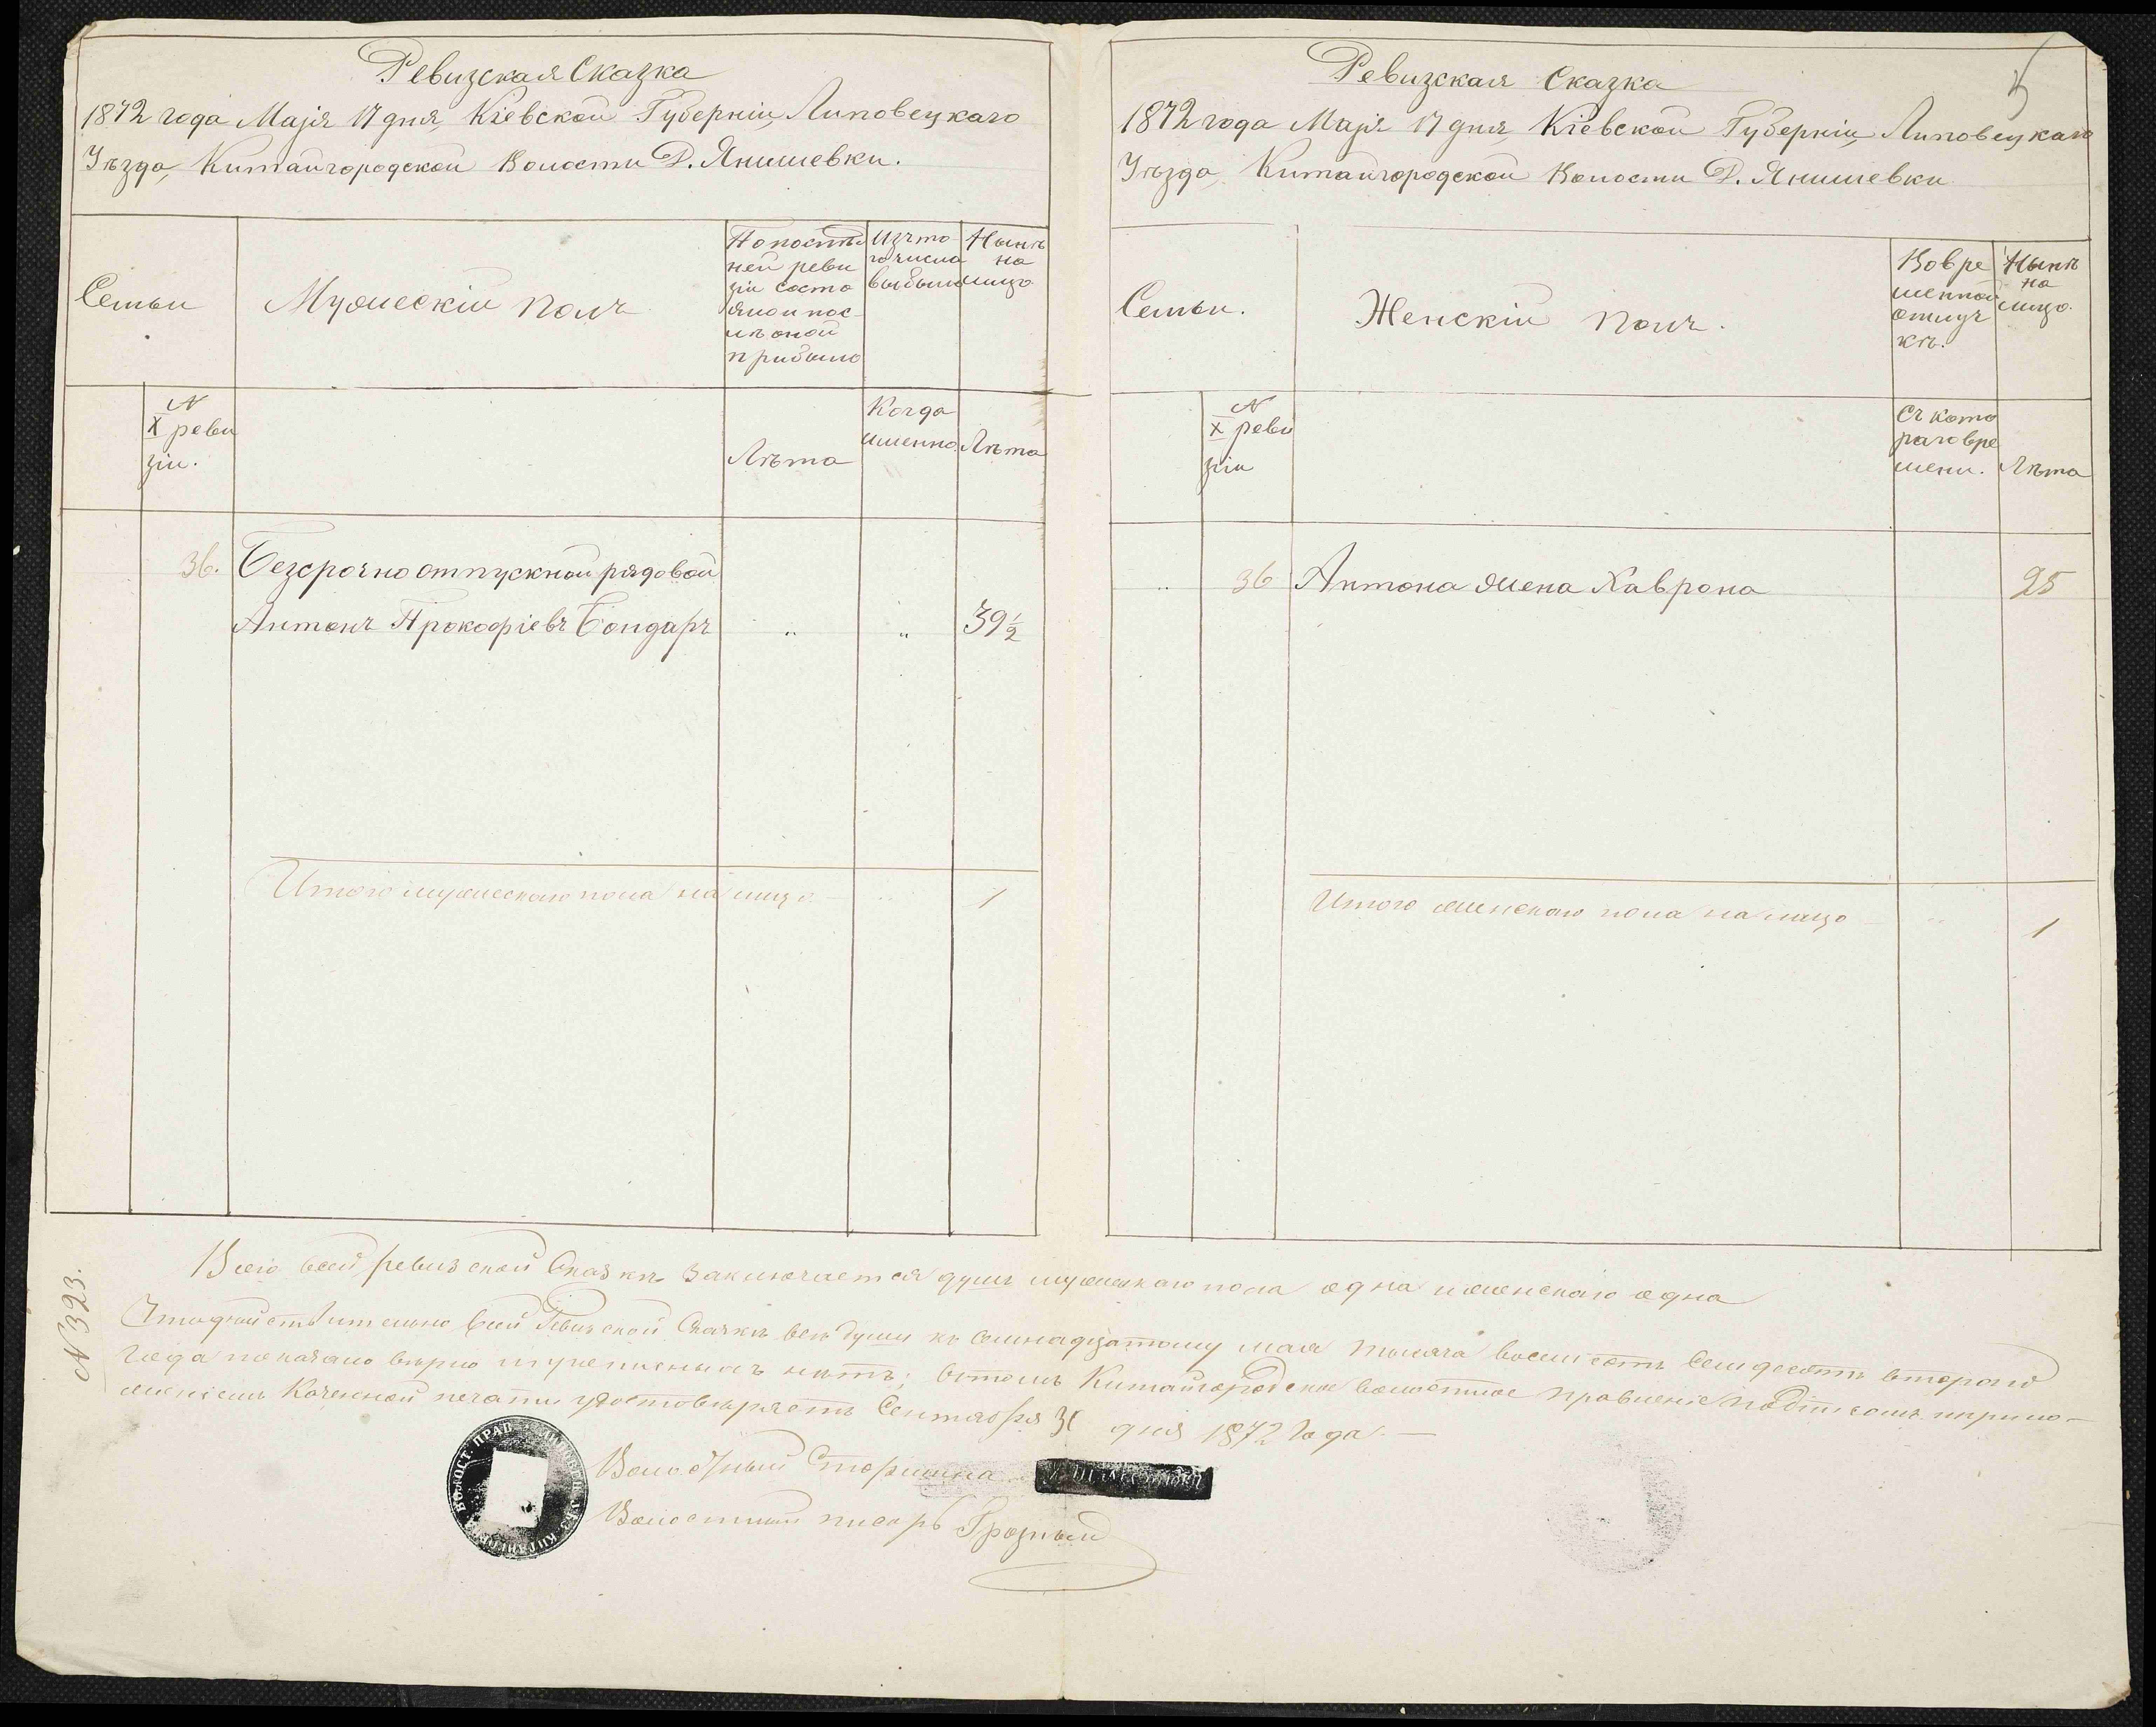 Ревизская Сказка
1872 года Маjя 17 дня, Кіевской Губерніи, Липовецкаго
Уѣзда, Китайгородской Волости Д. Янишевки.
Семьи
Мужескій полъ
По послѣд
ней реви
зіи состо
яло и пос
лѣ оной
прибыло
Изъ то
го числа
выбыло
Нынѣ
на
лицо
N
X реви
зіи.
Лѣта
Когда
именно.
Лѣта
36. Безсрочно отпускной рядовой
Антонъ Прокофіевъ Бондаръ " " 39 1/2
Итого мужескаго пола на лицо - " 1
5
Ревизская Сказка
1872 года Маjя 17 дня, Кіевской Губерніи, Липовецкаго
Уѣзда, Китайгородской Волости Д. Янишевки
Семьи.
Женскій полъ.
Во вре
менной
отлуч
кѣ.
Нынѣ
на
лицо.
N
X реви
зіи
Съ кото
раго вре
мени.
Лѣта
" 36 Антона жена Хаврона 25
Итого женскаго пола на лицо - " 1
Всего в сей ревизской Сказкѣ заключается душъ мужескаго пола одна и женскаго одна
Что действительно в сей Ревизской Сказкѣ всѣ души къ семнадцатому мая тысяча восемсотъ семдесятъ втораго
года показано вѣрно и прописныхъ нѣтъ; в томъ Китайгородское волостное правленіе подписомъ и прило-
женіемъ Казенной печати удостовѣряетъ Сентября 30 дня 1872 года. —
Волостный Старшина
Волостный писарь Грозный
N 323.
ВОЛОСТ. ПРАВ